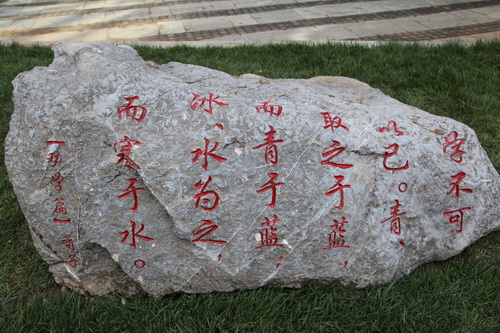 学不可
以已。青、
取之于蓝，
而青于蓝，
冰、水为之，
而寒于水。
【劝学篇】荀子